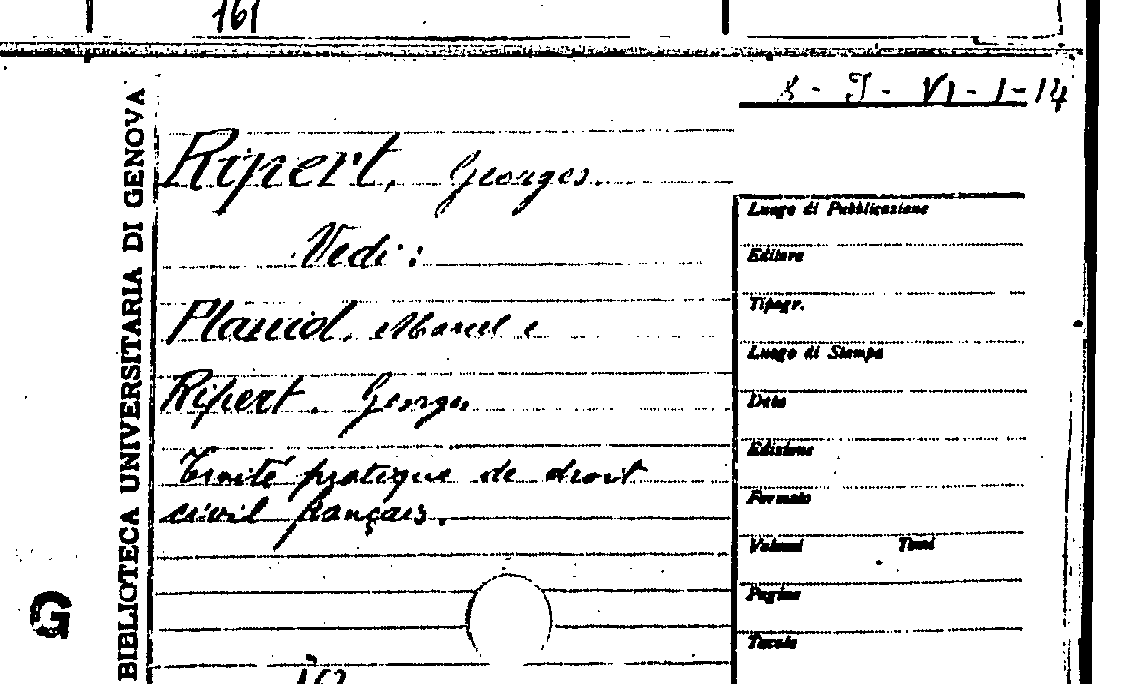 161
S - J - VI - 1 - 14
BIBLIOTECA UNIVERSITARIA DI GENOVA
Ripert, Georges.
Vedi :
Planiol, Marcel e
Ripert, Georges
Traité pratique de droit
civil français.
Luogo di Pubblicazione
Editore
Tipogr.
Luogo di Stampa
Data
Edizione
Formato
Volumi Tomi
Pagine
Tavole
G